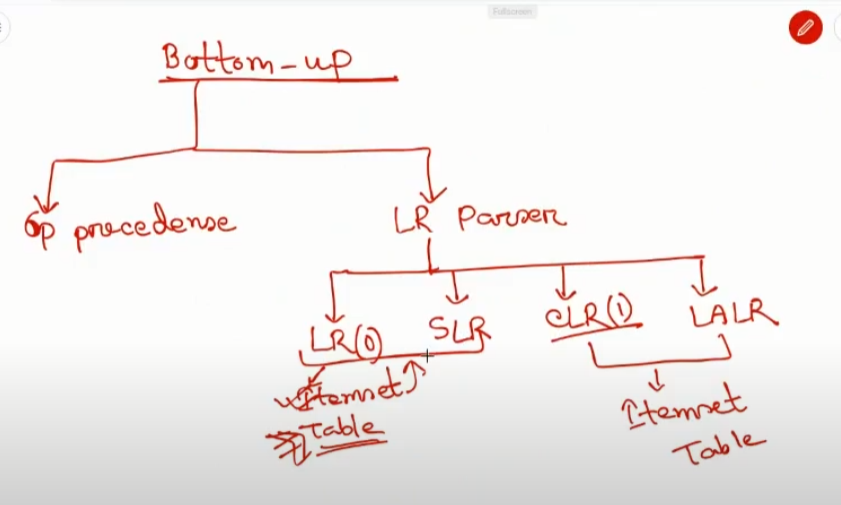 Fullscreen
Bottom-up
Op precedense
LR Parser
LR(0) SLR CLR(1) LALR
Itemset
Table
Itemset
Table